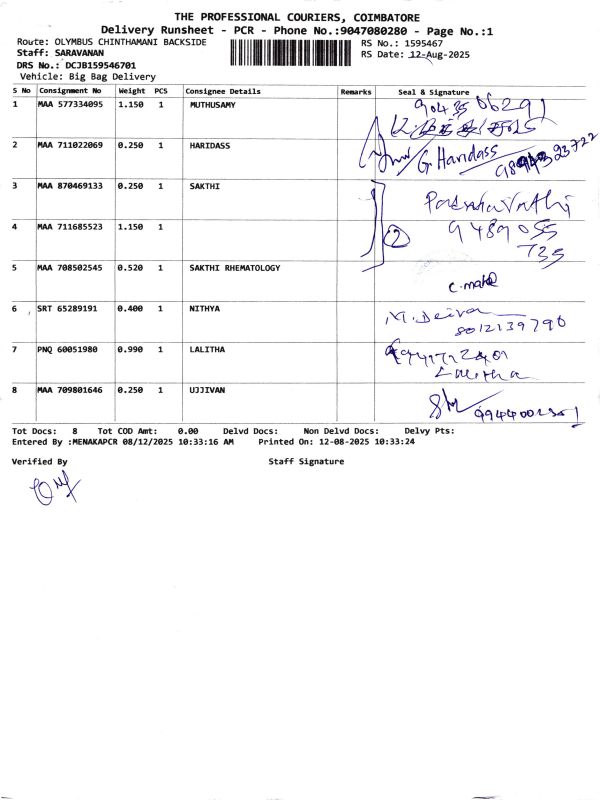 THE PROFESSIONAL COURIERS, COIMBATORE
Delivery Runsheet - PCR - Phone No.:9047080280 - Page No.:1
Route: OLYMBUS CHINTHAMANI BACKSIDE RS No.: 1595467
Staff: SARAVANAN RS Date: 12-Aug-2025
DRS No.: DCJB159546701
Vehicle: Big Bag Delivery
S No Consignment No Weight PCS Consignee Details Remarks Seal & Signature
1 MAA 577334095 1.150 1 MUTHUSAMY 90435 06291
2 MAA 711022069 0.250 1 HARIDASS G. Haridass
3 MAA 870469133 0.250 1 SAKTHI
4 MAA 711685523 1.150 1 2 9489055
735
5 MAA 708502545 0.520 1 SAKTHI RHEMATOLOGY
6 SRT 65289191 0.400 1 NITHYA 8012139790
7 PNQ 60051980 0.990 1 LALITHA
Lalitha
8 MAA 709801646 0.250 1 UJJIVAN
Tot Docs: 8 Tot COD Amt: 0.00 Delvd Docs: Non Delvd Docs: Delvy Pts:
Entered By :MENAKAPCR 08/12/2025 10:33:16 AM Printed On: 12-08-2025 10:33:24
Verified By Staff Signature